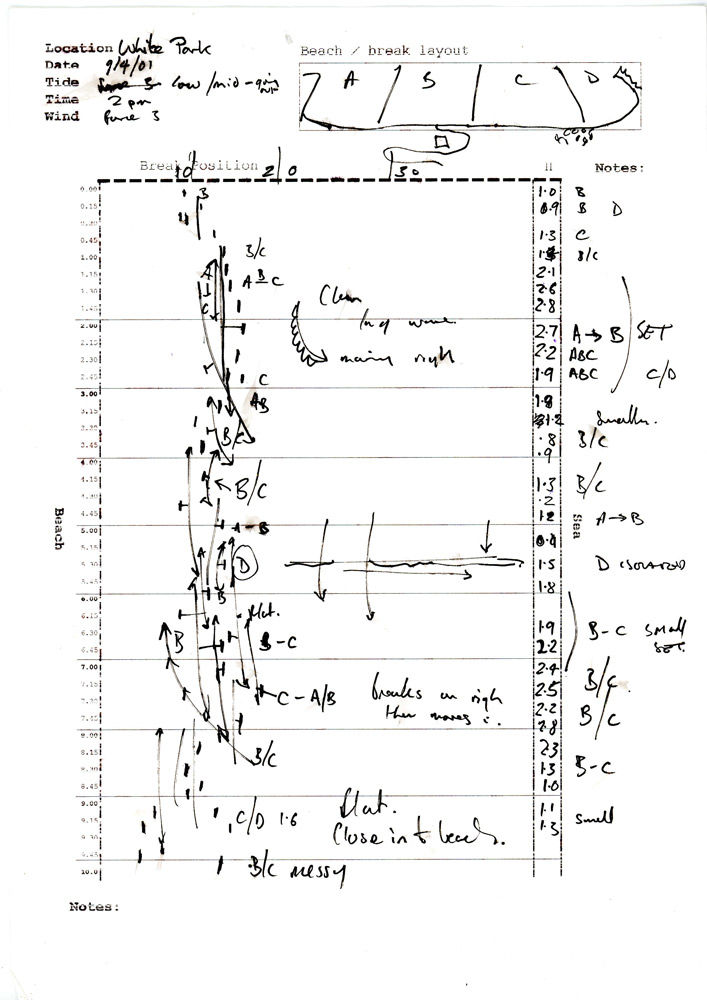 Location White Park
Beach / break layout
Date 9/4/01
Tide low/mid - going out
Time 2 pm
Wind force 3
A B C D
Break Position 10 20 30 H Notes:
0.00 1.0 B
0.15 B 0.9 B D
0.30
0.45 1.3 C
1.00 B/C B/C
1.15 A B C 2.1
1.30 A 2.6
1.45 C Clean 2.8
2.00 long wave
2.15 moving right 2.7 A → B SET
2.30 2.2 ABC
2.45 C 1.9 ABC C/D
3.00 AB 1.8
3.15 1.2 Smaller.
3.30 B/C .8 B/C
3.45 .9
4.00
4.15 B/C 1.3 B/C
4.30 .2
4.45 1.2 A → B
5.00 A - B
5.15 0.4
5.30 A D 1.5 D ISOLATED
5.45 1.8
6.00 B
6.15 flat.
6.30 B B - C 1.9 B - C small
6.45 2.2 SET
7.00 2.4
7.15 C - A/B breaks on right 2.5 B/C
7.30 then moves in. 2.2 B/C
7.45 2.8
8.00
8.15 B/C 2.3
8.30 1.3 B-C
8.45 1.0
9.00 flat. 1.1
9.15 C/D 1.6 1.3 small
9.30 Close in to beach.
9.45
10.0 B/C messy
Beach
Sea
Notes: